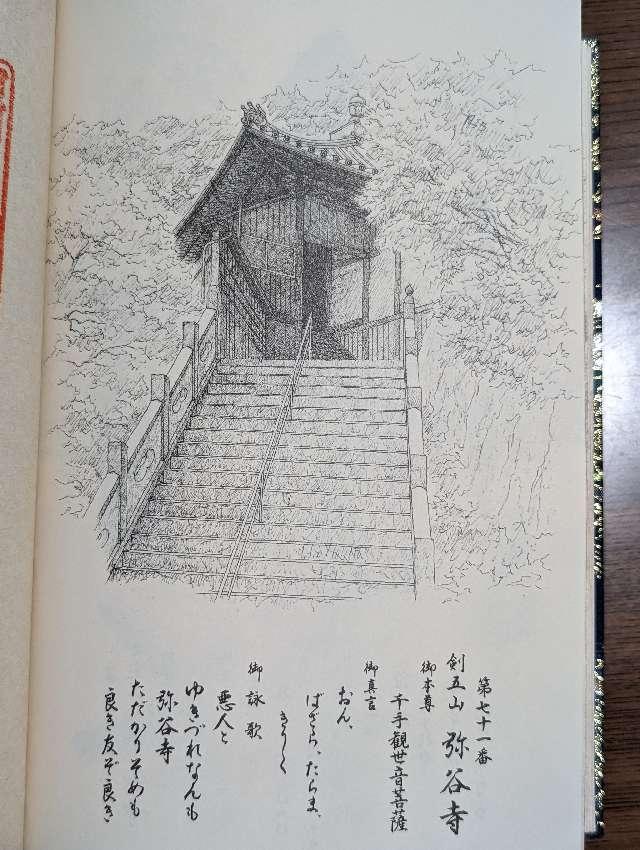 第七十一番
剣五山 弥谷寺
御本尊
千手観世音菩薩
御真言
おん、
ばざら、たらま、
きりく
御詠歌
悪人と
ゆきづれなんも
弥谷寺
ただかりそめも
良き友ぞ良き